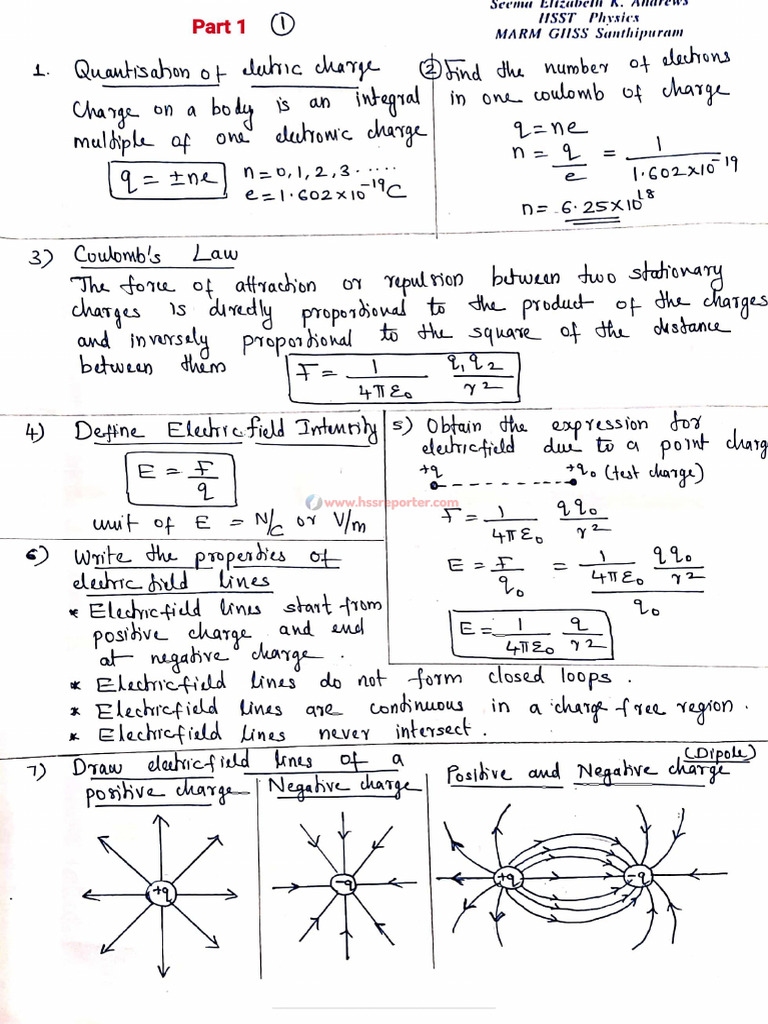 Seema Elizabeth K. Andrews
HSST Physics
MARM GHSS Santhipuram
Part 1 ①
1. Quantisation of eletric charge
Charge on a body is an integral
multiple of one electronic charge
q = ±ne n = 0, 1, 2, 3 .....
e = 1.602×10⁻¹⁹C
② Find the number of electrons
in one coulomb of charge
q = ne
n = q/e = 1/1.602×10⁻¹⁹
n = 6.25×10¹⁸
3) Coulomb's Law
The force of attraction or repulsion between two stationary
charges is directly proportional to the product of the charges
and inversely proportional to the square of the distance
between them F = 1/4πε₀ q₁q₂/r²
4) Define Electric field Intensity
E = F/q
unit of E = N/C or V/m
5) Obtain the expression for
electricfield due to a point charg
+q +q₀ (test charge)
F = 1/4πε₀ qq₀/r²
E = F/q₀ = 1/4πε₀ qq₀/r² / q₀
E = 1/4πε₀ q/r²
www.hssreporter.com
6) Write the properties of
electric field lines
* Electricfield lines start from
positive charge and end
at negative charge .
* Electricfield lines do not form closed loops .
* Electricfield lines are continuous in a charge free region .
* Electricfield lines never intersect .
7) Draw electricfield lines of a
positive charge
Negative charge
Positive and Negative charge (Dipole)
+q
-q
+q -q